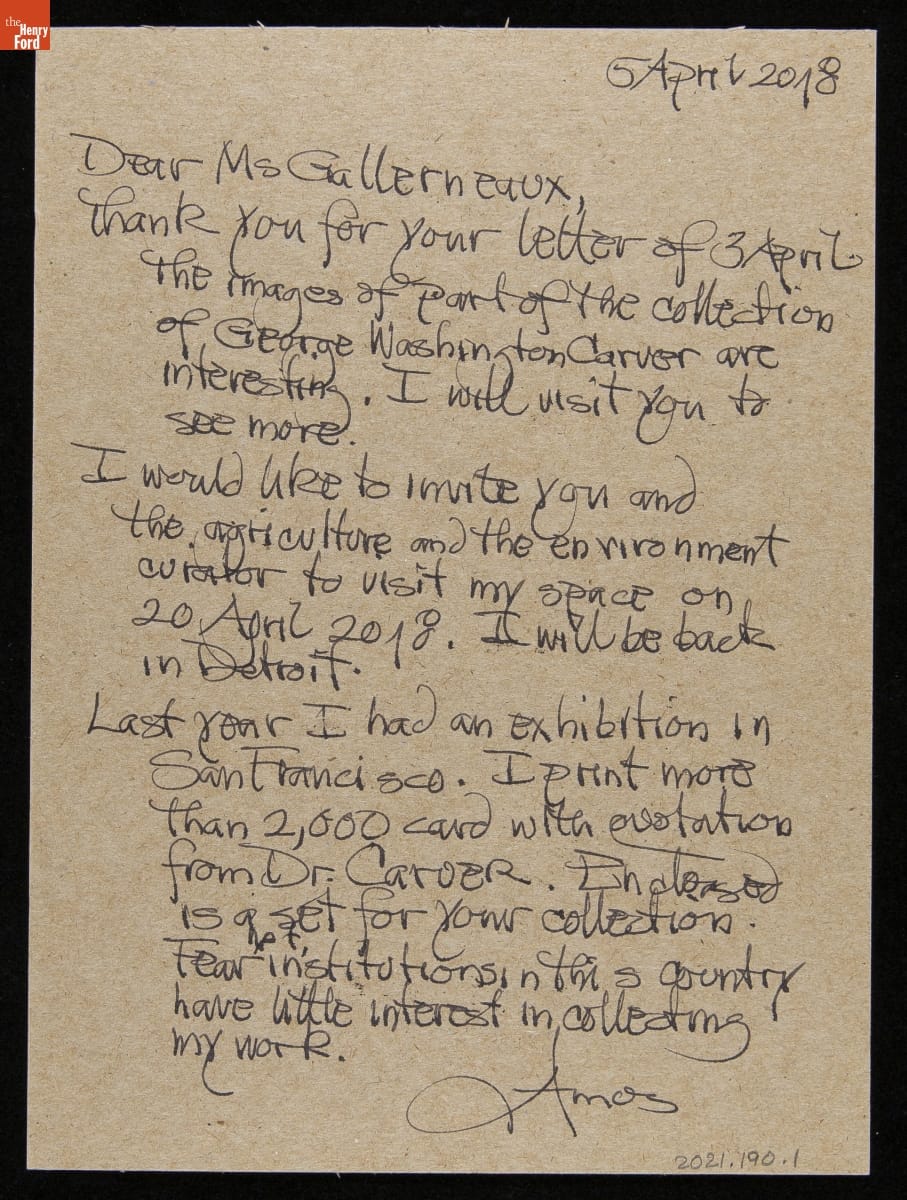 the
Henry
Ford
5 April 2018
Dear Ms Gallerneaux,
Thank you for your letter of 3 April
The images of part of the collection
of George Washington Carver are
interesting. I will visit you to
see more.
I would like to invite you and
the agriculture and the environment
curator to visit my space on
20 April 2018. I will be back
in Detroit.
Last year I had an exhibition in
San Francisco. I print more
than 2,000 card with
from Dr. Carver. Enclosed
is a set for your collection.
Fear institutions in this country
have little interest in collecting
my work.
Amos
2021.190.1